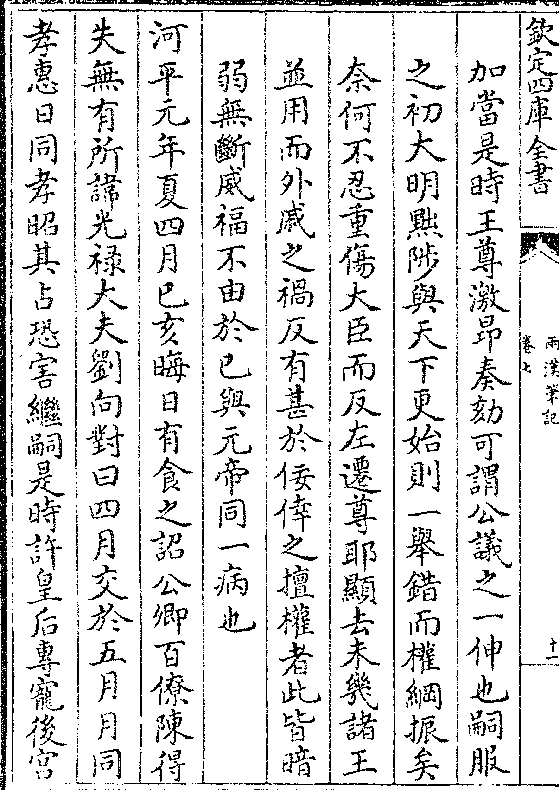 欽定四庫全書
兩漢筆記
卷七
十一
加當是時王尊激昂奏劾可謂公議之一伸也嗣服
之初大明黜陟與天下更始則一舉錯而權綱振矣
奈何不忍重傷大臣而反左遷尊耶顯去未幾諸王
並用而外戚之禍反有甚於佞倖之擅權者此皆暗
弱無斷威福不由於已與元帝同一病也
河平元年夏四月已亥晦日有食之詔公卿百僚陳得
失無有所諱光禄大夫劉向對曰四月交於五月月同
孝惠日同孝昭其占恐害繼嗣是時許皇后專寵後宫